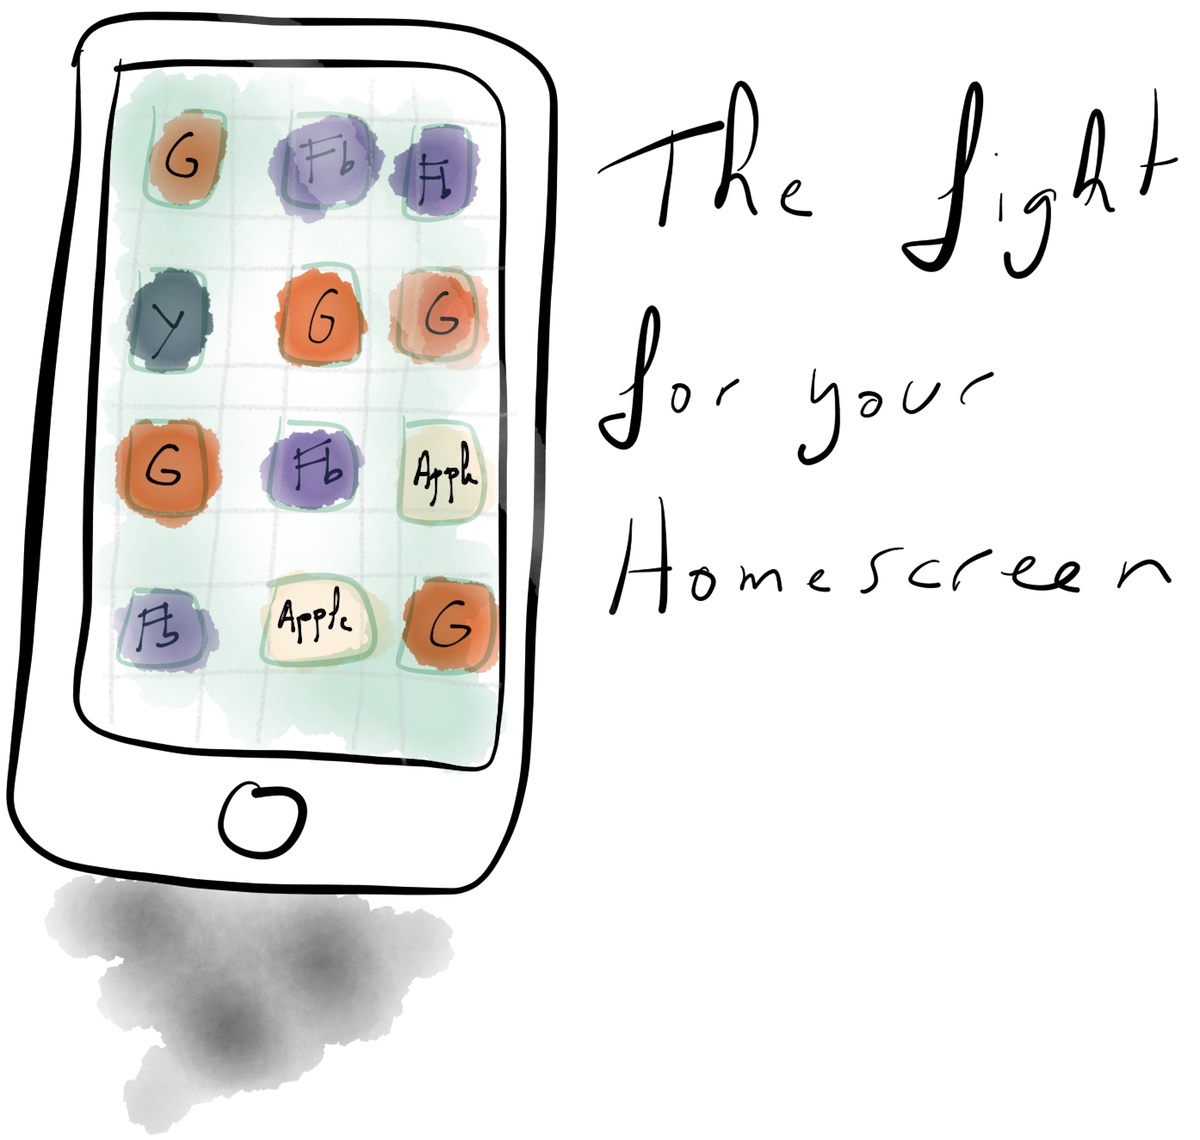 G Fb Fb
y G G
G Fb Apple
Fb Apple G
The fight
for your
Homescreen